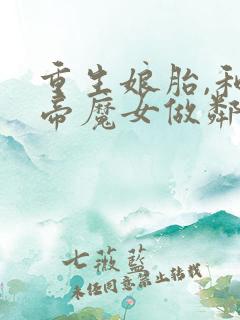 重生娘胎,和
帝魔女做鄰
七薇蓝
未经同意禁止转载